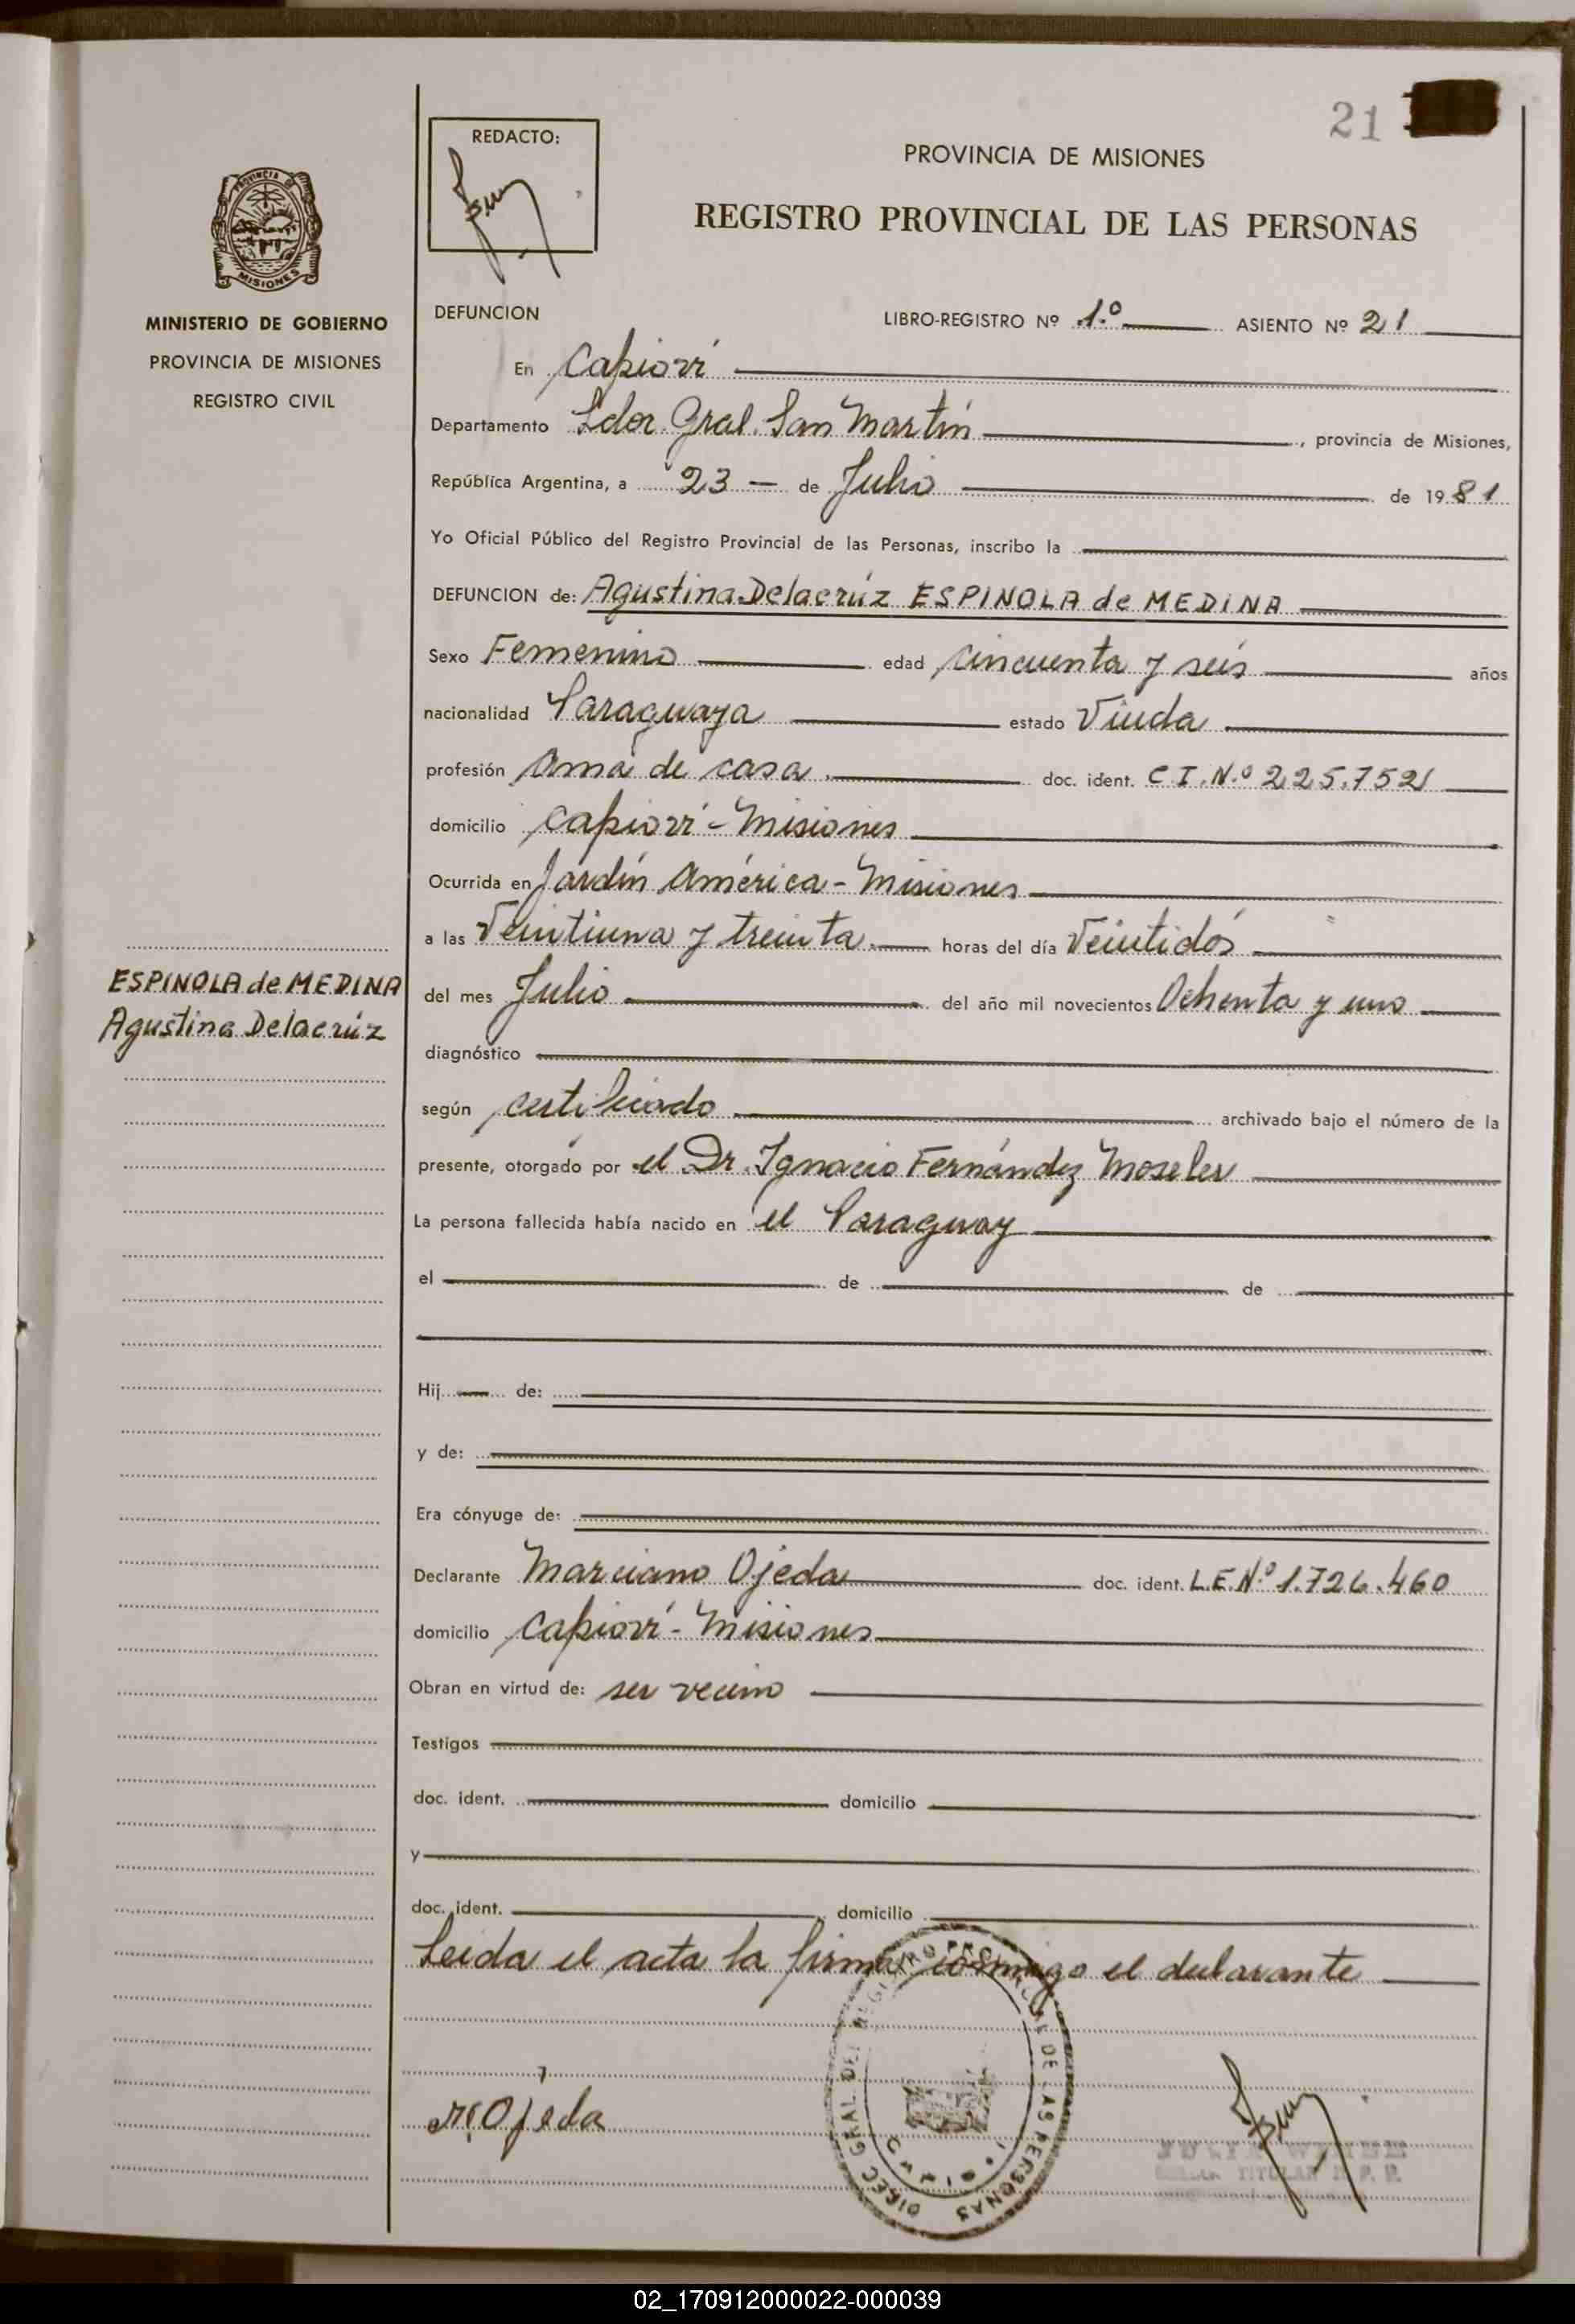 21
REDACTO:
PROVINCIA DE MISIONES
REGISTRO PROVINCIAL DE LAS PERSONAS
PROVINCIA DE
MISIONES
MINISTERIO DE GOBIERNO
PROVINCIA DE MISIONES
REGISTRO CIVIL
DEFUNCION
LIBRO-REGISTRO Nº 1.º ASIENTO Nº 21
En Capioví
Departamento Ldor. Gral. San Martín, provincia de Misiones,
República Argentina, a 23 — de Julio de 1981
Yo Oficial Público del Registro Provincial de las Personas, inscribo la
DEFUNCION de: Agustina Delacrúz ESPINOLA de MEDINA
Sexo Femenino edad cincuenta y seis años
nacionalidad Paraguaya estado Viuda
profesión Ama de casa doc. ident. C I. N.º 225.752
domicilio Capioví - Misiones
Ocurrida en Jardín América - Misiones
a las Veintiuna y treinta horas del día Veintidós
ESPINOLA de MEDINA
Agustina Delacrúz
del mes Julio del año mil novecientos Ochenta y uno
diagnóstico
según certificado archivado bajo el número de la
presente, otorgado por el Dr. Ignacio Fernández Moseler
La persona fallecida había nacido en el Paraguay
el de de
Hij de:
y de:
Era cónyuge de:
Declarante Marciano Ojeda doc. ident. L.E. N.º 1.726.460
domicilio Capioví - Misiones
Obran en virtud de: ser vecino
Testigos
doc. ident. domicilio
y
doc. ident. domicilio
Leída el acta la firma conmigo el declarante
DIREC GRAL DEL REGISTRO PROVINCIAL DE LAS PERSONAS
CAPIOVI
M. Ojeda
TITULAR
02_170912000022-000039